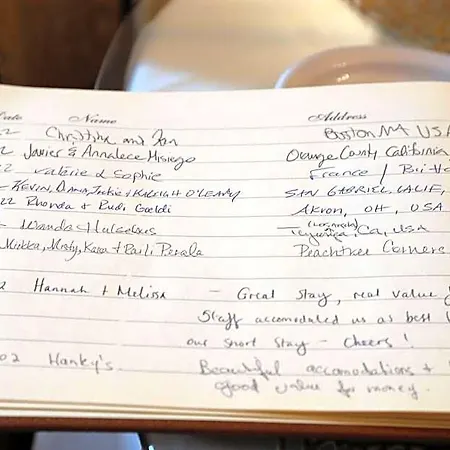 Date Name Address
22 Christina and Ian Boston MA USA
22 Javier & Annalece Hisiego Orange County California
22 Valerie & Sophie France /
- Kevin, Dawn, Jackie & Kaleigh O'Leary San Gabriel, Calif,
22 Rhonda & Rudi Gaeldi Akron, OH, USA
- Wanda Ca, USA
Mirkka, Misty, Kara & Pauli Penala Peachtree Corners
2 Hannah + Melissa - Great stay, real value
Staff accomodated us as best
our short stay - Cheers!
02 Hanky's. Beautiful accomodations +
good value for money.